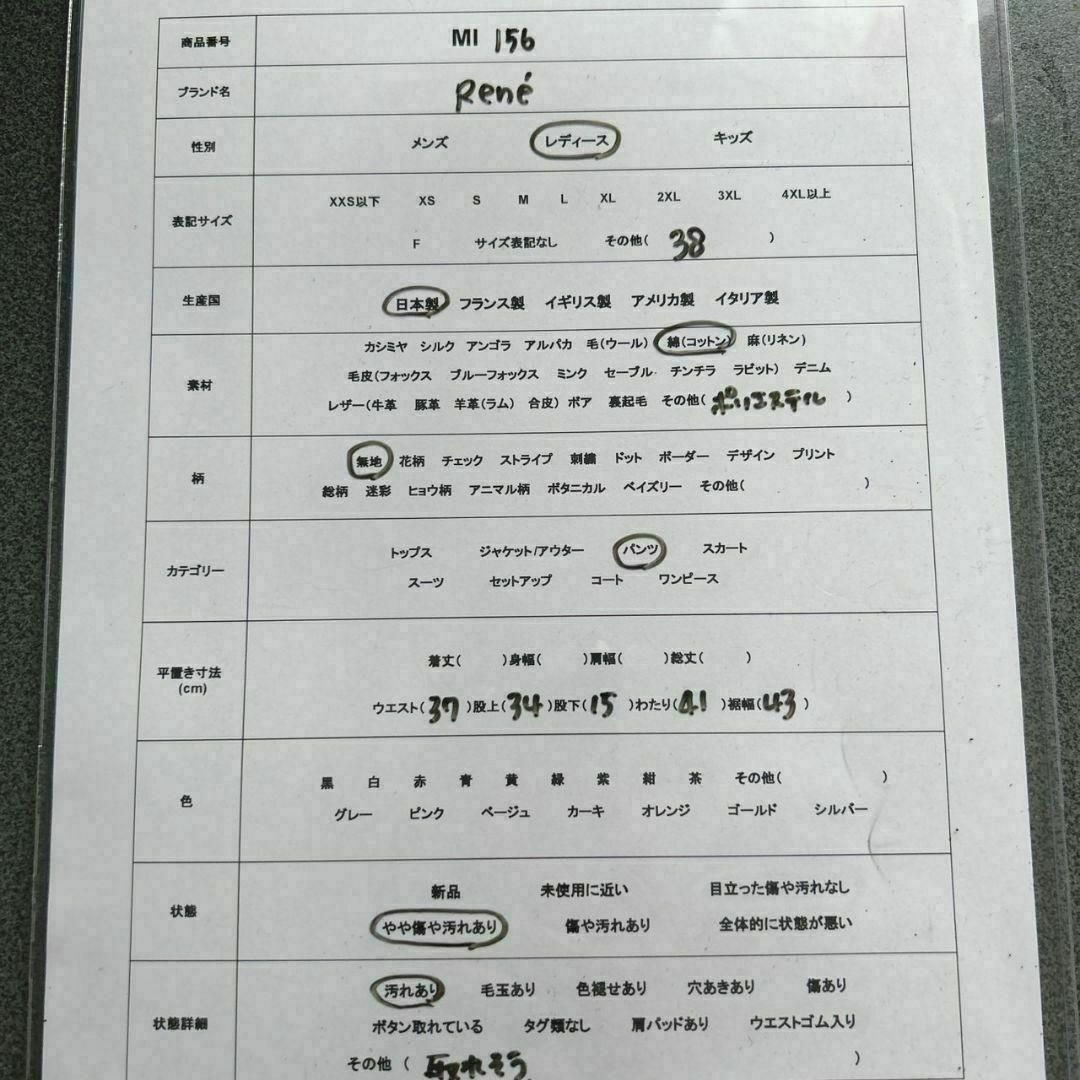 商品番号 MI 156
ブランド名 René
性別 メンズ レディース キッズ
表記サイズ XXS以下 XS S M L XL 2XL 3XL 4XL以上
F サイズ表記なし その他( 38 )
生産国 日本製 フランス製 イギリス製 アメリカ製 イタリア製
素材 カシミヤ シルク アンゴラ アルパカ 毛(ウール) 綿(コットン) 麻(リネン)
毛皮(フォックス ブルーフォックス ミンク セーブル チンチラ ラビット) デニム
レザー(牛革 豚革 羊革(ラム) 合皮) ボア 裏起毛 その他( ポリエステル )
柄 無地 花柄 チェック ストライプ 刺繍 ドット ボーダー デザイン プリント
総柄 迷彩 ヒョウ柄 アニマル柄 ボタニカル ペイズリー その他( )
カテゴリー トップス ジャケット/アウター パンツ スカート
スーツ セットアップ コート ワンピース
平置き寸法
(cm)
着丈( )身幅( )肩幅( )総丈( )
ウエスト( 37 )股上( 34 )股下( 15 )わたり( 41 )裾幅( 43 )
色 黒 白 赤 青 黄 緑 紫 紺 茶 その他( )
グレー ピンク ベージュ カーキ オレンジ ゴールド シルバー
状態 新品 未使用に近い 目立った傷や汚れなし
やや傷や汚れあり 傷や汚れあり 全体的に状態が悪い
状態詳細 汚れあり 毛玉あり 色褪せあり 穴あきあり 傷あり
ボタン取れている タグ類なし 肩パッドあり ウエストゴム入り
その他 ( 取れそう )